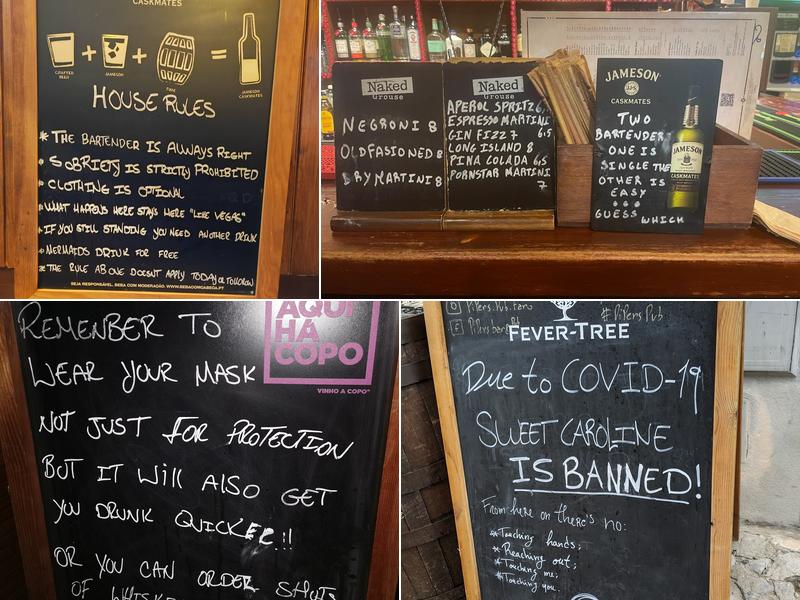 CASKMATES
CRAFTED BEER
JAMESON
JAMESON CASKMATES
HOUSE RULES
* THE BARTENDER IS ALWAYS RIGHT
• SOBRIETY IS STRICTLY PROHIBITED
• CLOTHING IS OPTIONAL
• WHAT HAPPENS HERE STAYS HERE "LIKE VEGAS"
• IF YOU STILL STANDING YOU NEED ANOTHER DRINK
* MERMAIDS DRINK FOR FREE
* THE RULE ABOVE DOESNT APPLY TODAY OR TOMORROW
SEJA RESPONSÁVEL. BEBA COM MODERAÇÃO. WWW.BEBACOMCABECA.PT
Naked
Grouse
NEGRONI 8
OLDFASIONED 8
DRY MARTINI 8
Naked
Grouse
APEROL SPRITZ 6,
ESPRESSO MARTINI
6.5
GIN FIZZ 7
LONG ISLAND 8
PINA COLADA 6,5
PORNSTAR MARTINI
7
JAMESON
CASKMATES
TWO
BARTENDER
ONE IS
SINGLE THE
OTHER IS
EASY
...
GUESS WHICH
JAMESON
CASKMATES
AQUI
HÁ
COPO
VINHO A COPO
REMENBER TO
WEAR YOUR MASK
NOT JUST FOR PROTECTION
BUT IT WILL ALSO GET
YOU DRUNK QUICKER!!
OR YOU CAN ORDER SHOTS
OF WHISKE
#PipersPub
FEVER-TREE
Due to COVID-19
SWEET CAROLINE
IS BANNED!
From here on there's no:
* Touching hands;
* Reaching out;
* Touching me;
* Touching you.